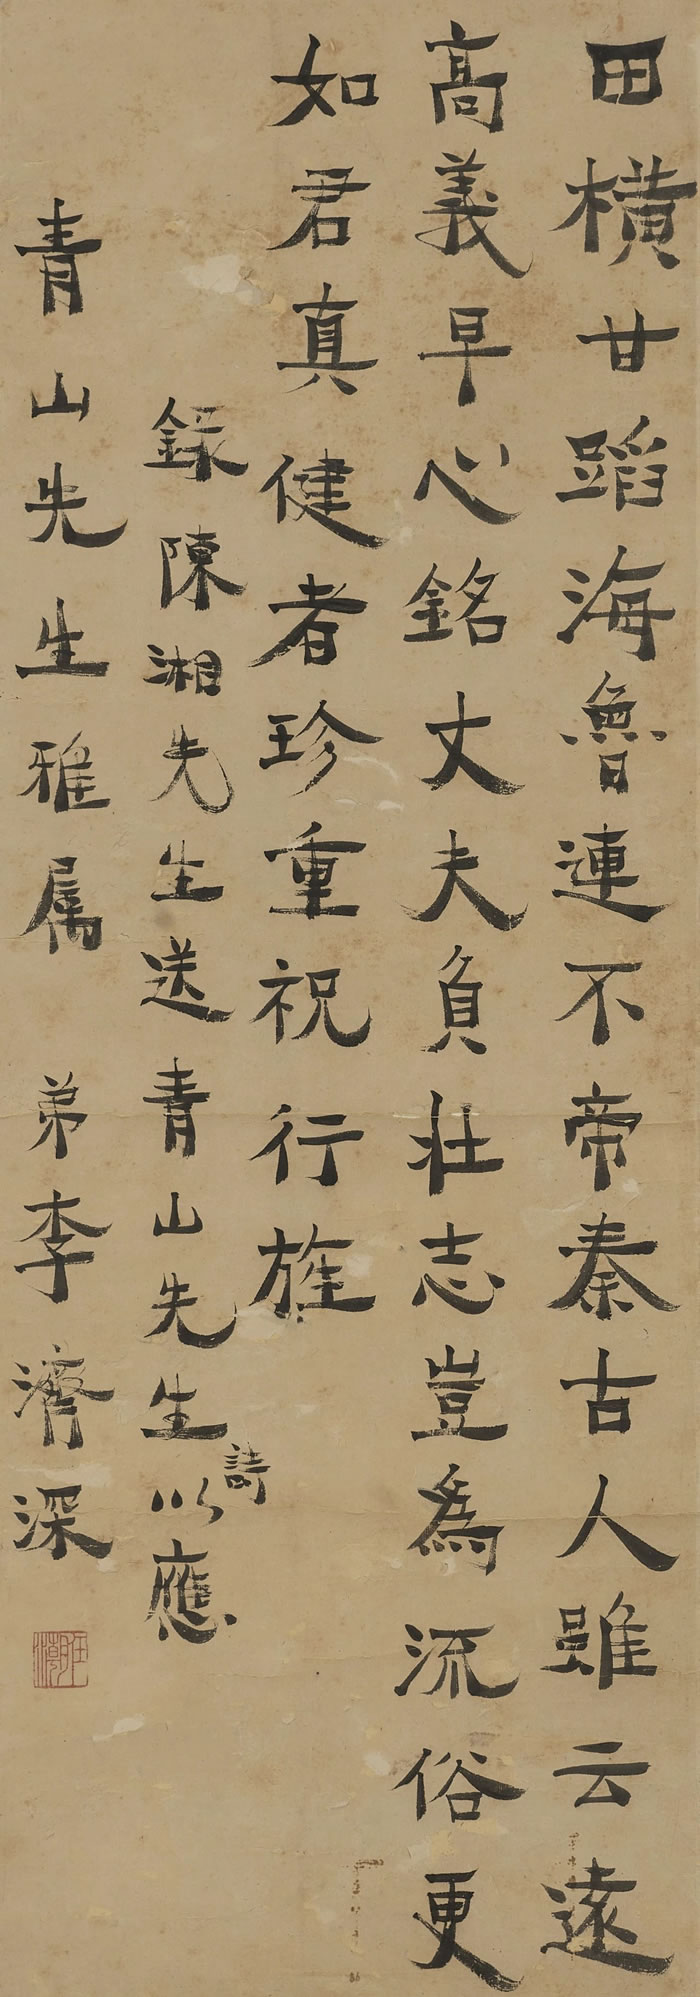 田橫甘蹈海魯連不帝秦古人雖云遠
高義早心銘丈夫負壯志豈為流俗更
如君真健者珍重祝行旌
錄陳湘先生送青山先生詩以應
青山先生雅属 弟李濟深
任潮